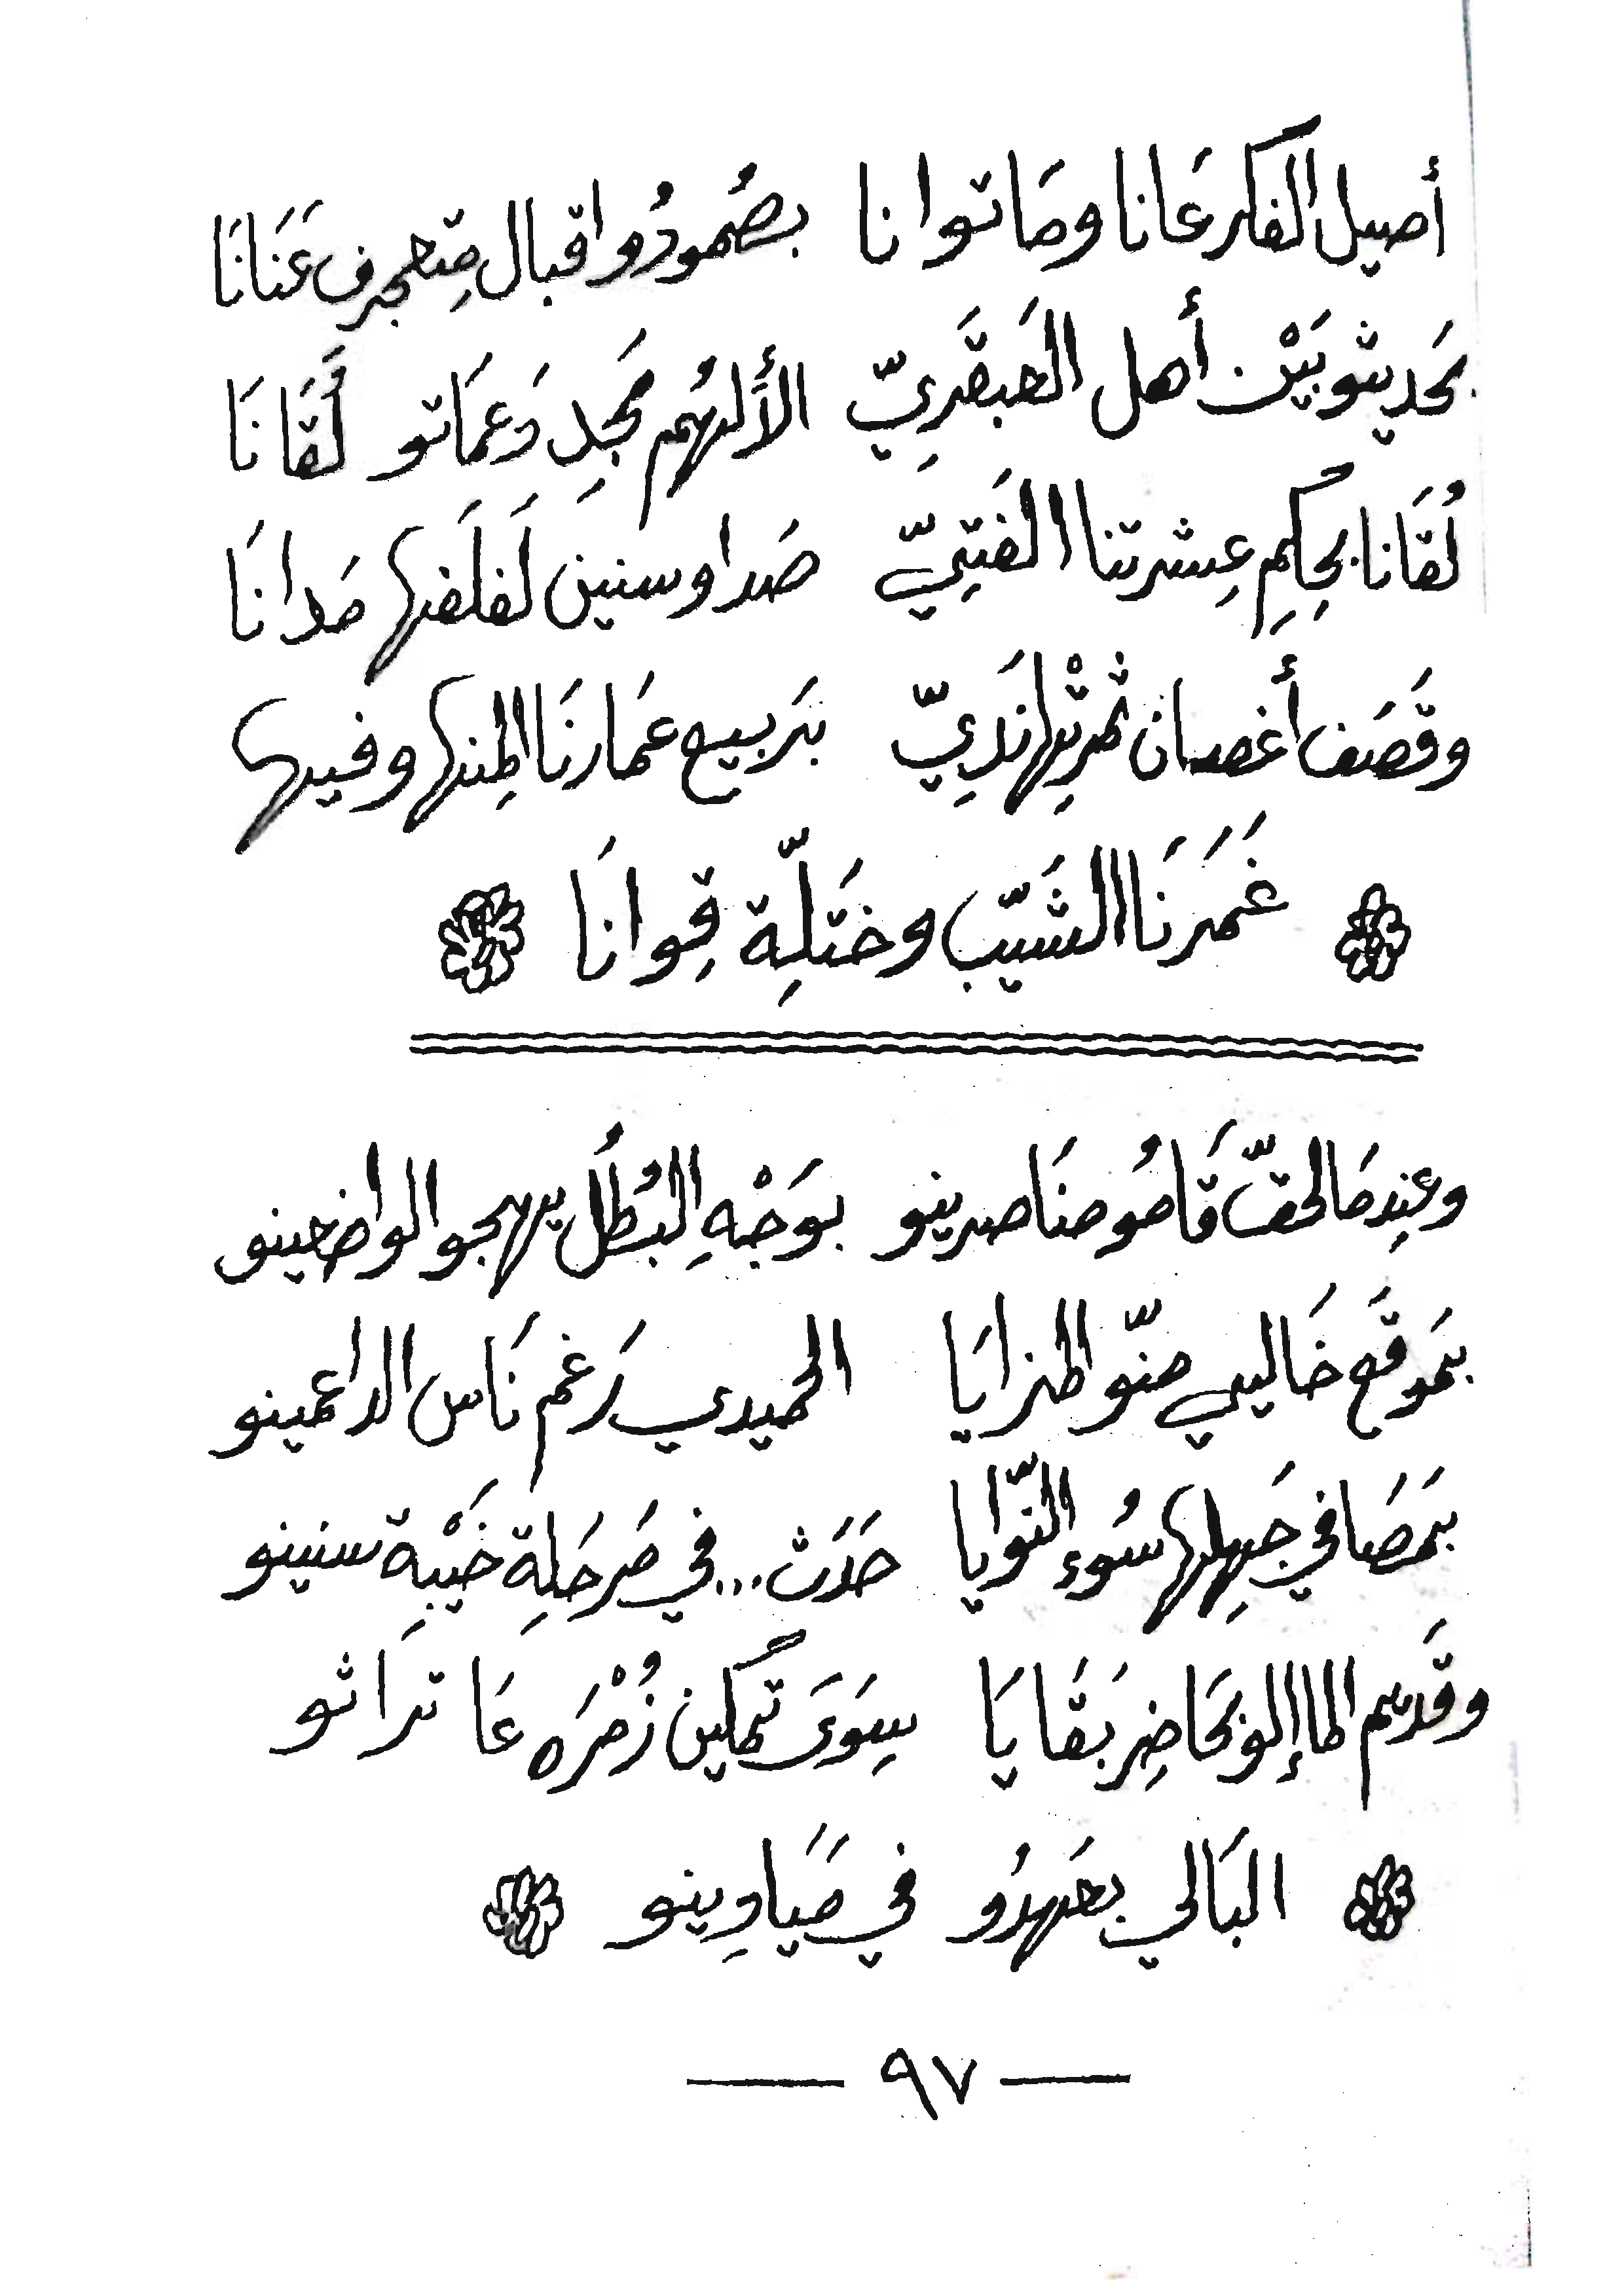 أصيل الفكر عَانا ومَا توانا بصُمودُو اقبال مِتعجرف عَنَانَا
بحَديثو بَيْن أهل العَبقَرِيّ الألهُم مَجِد وَعمَاتو لُقَانَا
لُقَانا بحِكِم عِشرتنا الفَتِيّ صَدا وسنين لَفلَفها مَدانَا
وقَصَف أغصان ثمرْتِها نَدِيّ بَربيع عمَارنَا المِنها وفيها
غَمَرنَا الشَيّب وختَلِّة قِوانَا
وعِندمَا الحقّ قَامُو منَاصرينو بوَجْهِ البُطُل يهجو الواضعينو
بمَوقَع خَاليي منّو المزايَا الحميدي رَغم نَاس الداعمينو
بمَصَافي جَهِلها سُوء النّوايا حَدَث... في مَرحَلِة خَيْبِة سنينو
وقَديم الما إلو بحَاضِر بَقَايَا سِوَى تمكين زُمْرَه عَا تراثو
البَالي بعَهدُو في مَيَاوِينو
— ٩٧ —